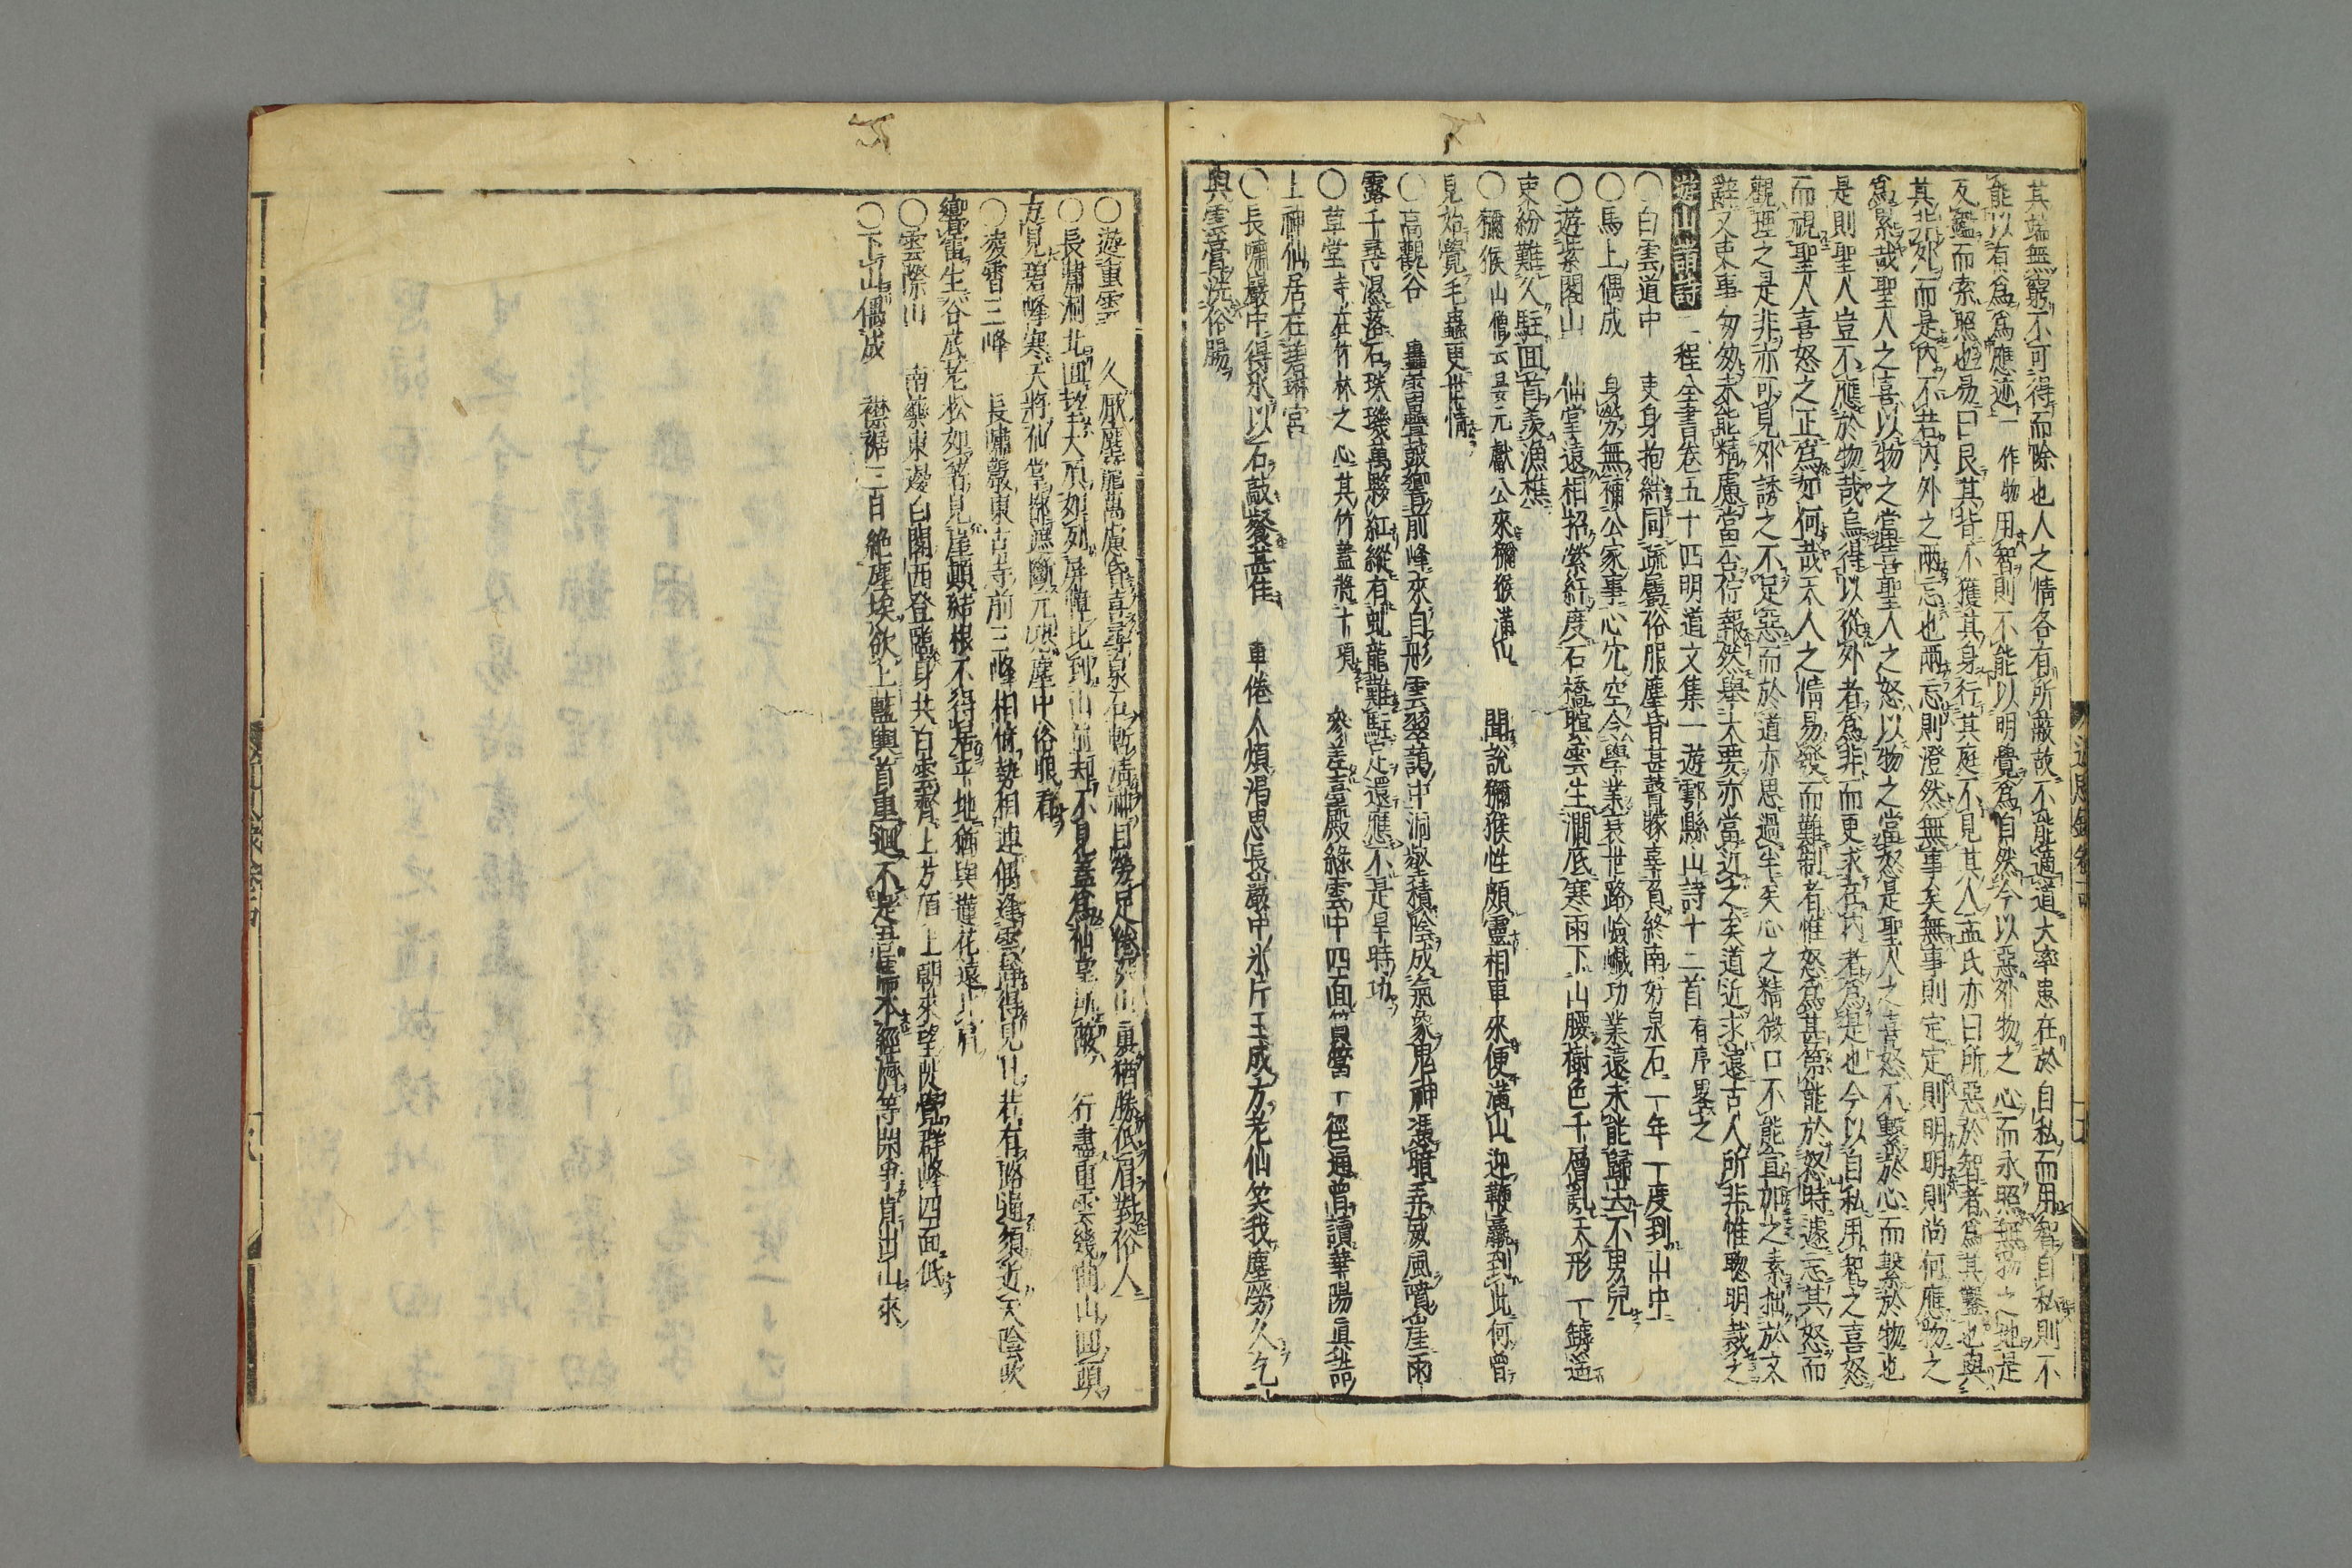 其端無窮不可得而除也人之情各有所蔽故不能適道大率患在於自私而用智自私則不
能以有爲爲應迹一作物用智則不能以明覺爲自然今以惡外物之心而求照無物之地是
反鑑而索照也易曰艮其背不獲其身行其庭不見其人孟氏亦曰所惡於智者爲其鑿也與
其非外而是內不若內外之兩忘也兩忘則澄然無事矣無事則定定則明明則尚何應物之
爲累哉聖人之喜以物之當喜聖人之怒以物之當怒是聖人之喜怒不繫於心而繫於物也
是則聖人豈不應於物哉烏得以從外者爲非而更求在內者爲是也今以自私用智之喜怒
而視聖人喜怒之正爲如何哉夫人之情易發而難制者惟怒爲甚第能於怒時遽忘其怒而
觀理之是非亦可見外誘之不足惡而於道亦思過半矣心之精微口不能宣加之素拙於文
辭又吏事匆匆未能精慮當否佇報然舉大要亦當近之矣道近求遠古人所非惟聰明裁之
遊山諸詩 二程全書卷五十四明道文集一遊鄠縣山詩十二首有序畧之
○白雲道中 吏身拘絆同疏屬俗服塵昏甚瞽矇辜負終南好泉石一年一度到山中
○馬上偶成 身勞無補公家事心冗空令學業衰世路嶮巇功業遠未能歸去不男兒
○遊紫閣山 仙掌遠相招縈紆度石橋暝雲生澗底寒雨下山腰樹色千層亂天形一罅遥
吏紛難久駐回首羨漁樵
○獼猴 山僧云晏元獻公來獼猴滿山 聞說獼猴性頗靈相車來便滿山迎鞭羸到此何曾
見始覺毛蟲更世情
○高觀谷 轟雷疊鼓響前峰來自彤雲翠藹中洞壑積陰成氣象鬼神憑暗弄威風噴崖雨
露千尋濕落石珠璣萬顆紅縱有虬龍難駐足還應不是旱時功
○草堂 寺在竹林之心其竹蓋將十項 參差臺殿綠雲中四面篔簹一徑通曾讀華陽真誥
上神仙居在碧琳宮
○長嘯巖中得氷以石敲餐甚佳 車倦人煩渴思長巖中氷片玉成方老仙笑我塵勞久乞
與雲膏洗俗腸
○遊重雲 久厭塵籠萬慮昏喜尋泉石暫淸神目勞足倦深山裏猶勝低眉對俗人
○長嘯洞北回望大頂如列屏幛比到山前却不見蓋爲仙掌所蔽 行盡重雲幾曲山回頭
方見碧峰寒天將仙掌都遮斷元恐塵中俗眼看
○凌霄三峰 長嘯巖東古寺前三峰相倚勢相連偶逢雲靜得見日若有路通須近天陰吹
響雷生谷底老松如薺見崖顚結根不得居平地猶與蓮花遠比肩
○雲際山 南藥東邊白閣西登臨身共白雲齊上方頂上朝來望陡覺群峰四面低
○下山偶成 襟裾三日絶塵埃欲上藍輿首重廻不是吾儒本經濟等閑事肯出山來